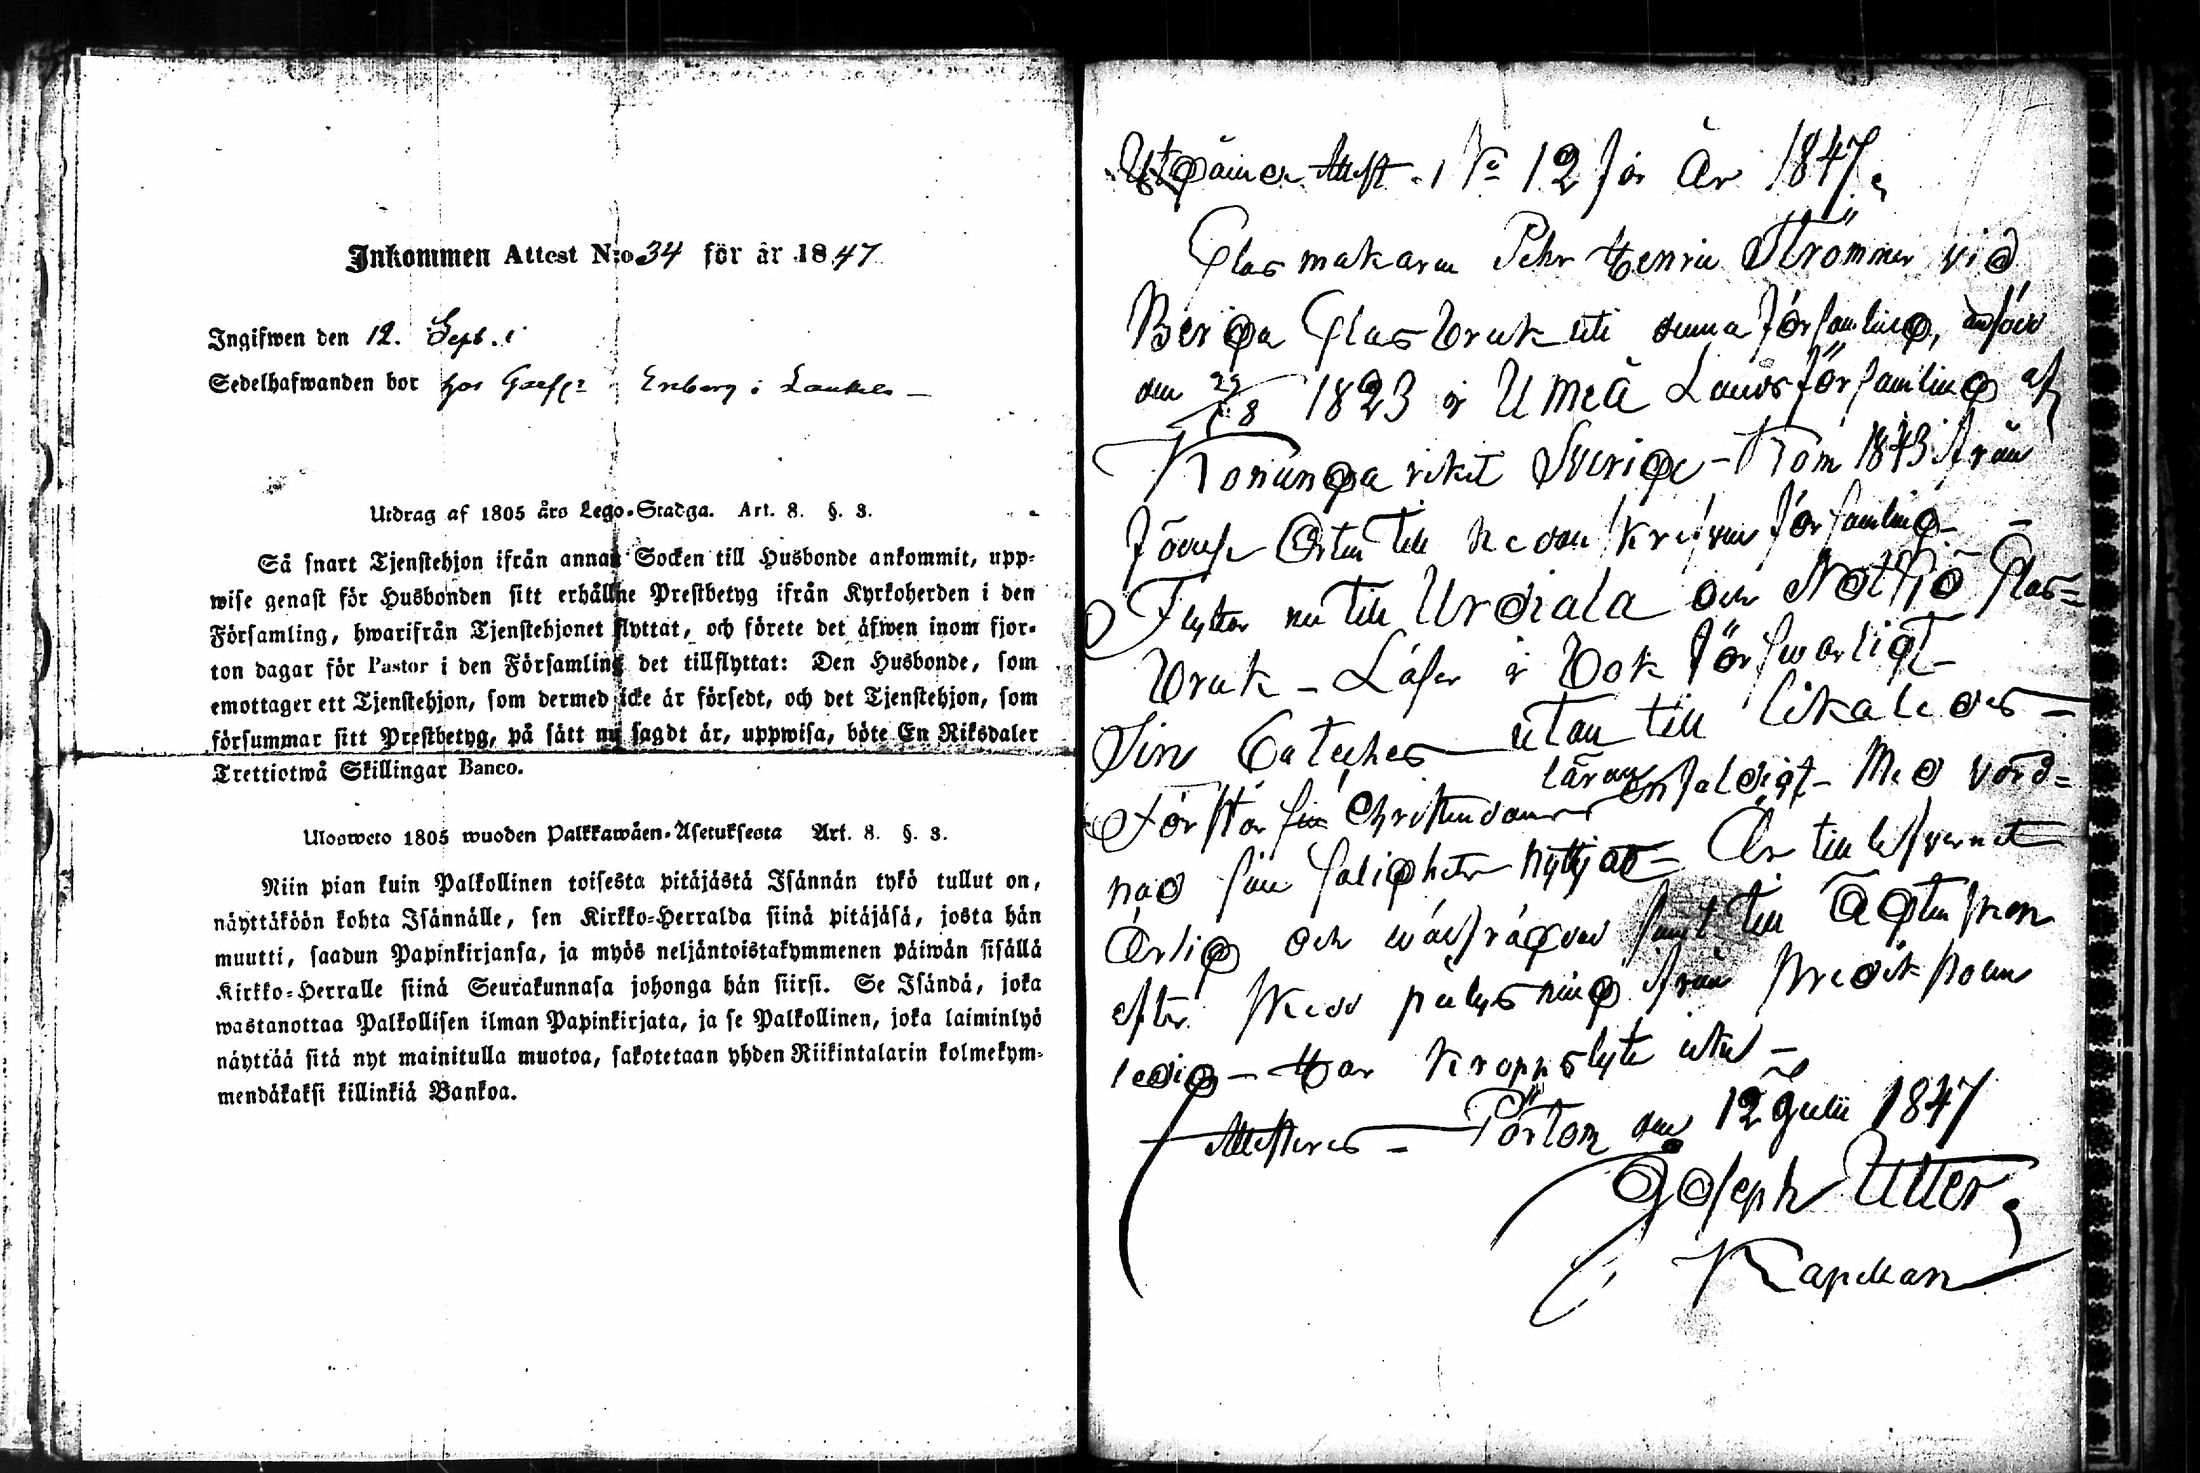 Inkommen Attest N:o 34 för år 1847
Ingifwen den 12. Sept.
Sedelhafwanden bor hos Enberg i
Utdrag af 1805 års Lego-Stadga. Art. 8. §. 3.
Så snart Tjenstehjon ifrån annan Socken till Husbonde ankommit, upp-
wise genast för Husbonden sitt erhållne Prestbetyg ifrån Kyrkoherden i den
Församling, hwarifrån Tjenstehjonet flyttat, och förete det äfwen inom fjor-
ton dagar för Pastor i den Församling det tillflyttat: Den Husbonde, som
emottager ett Tjenstehjon, som dermed icke är försedt, och det Tjenstehjon, som
försummar sitt Prestbetyg, på sätt nu sagdt är, uppwisa, böte En Riksdaler
Trettiotwå Skillingar Banco.
Ulosweto 1805 wuoden Palkkawäen-Asetuksesta Art. 8. §. 3.
Niin pian kuin Palkollinen toisesta pitäjästä Isännän tykö tullut on,
näyttäköön kohta Isännälle, sen Kirkko-Herralda siinä pitäjäsä, josta hän
muutti, saadun Papinkirjansa, ja myös neljäntoistakymmenen päiwän sisällä
Kirkko-Herralle siinä Seurakunnasa johonga hän siirsi. Se Isändä, joka
wastanottaa Palkollisen ilman Papinkirjata, ja se Palkollinen, joka laiminlyö
näyttää sitä nyt mainitulla muotoa, sakotetaan yhden Riikintalarin kolmekym-
mendäkaksi killinkiä Bankoa.
Utgåuen Attest N:o 12 för År 1847
Glasmakaren Pehr Henric Strömmer vid
Berga Glasbruk uti denna församling, född
den 29/8 1823 i Umeå Landsförsamling af
Konungariket Sverige - Kom 1843 ifrån
till nedanskrefven församling -
Flyttar nu till Urdiala och Notsjö Glas=
bruk - Läser i Bok försvarligt -
Sin Cateches utan till likaledes -
Förstår Christendoms läran enfaldigt - Med vörd=
nad sina saligheter nyttjat - Är till lefvernet
Ärlig och wälfrägdad samt till Ägtenskap
efter sked pålysning ifrån predikstolen
ledig - Har kroppslyte intet -
Attesteres - Pörtom den 12 Julii 1847
Joseph Utter
Kapellan